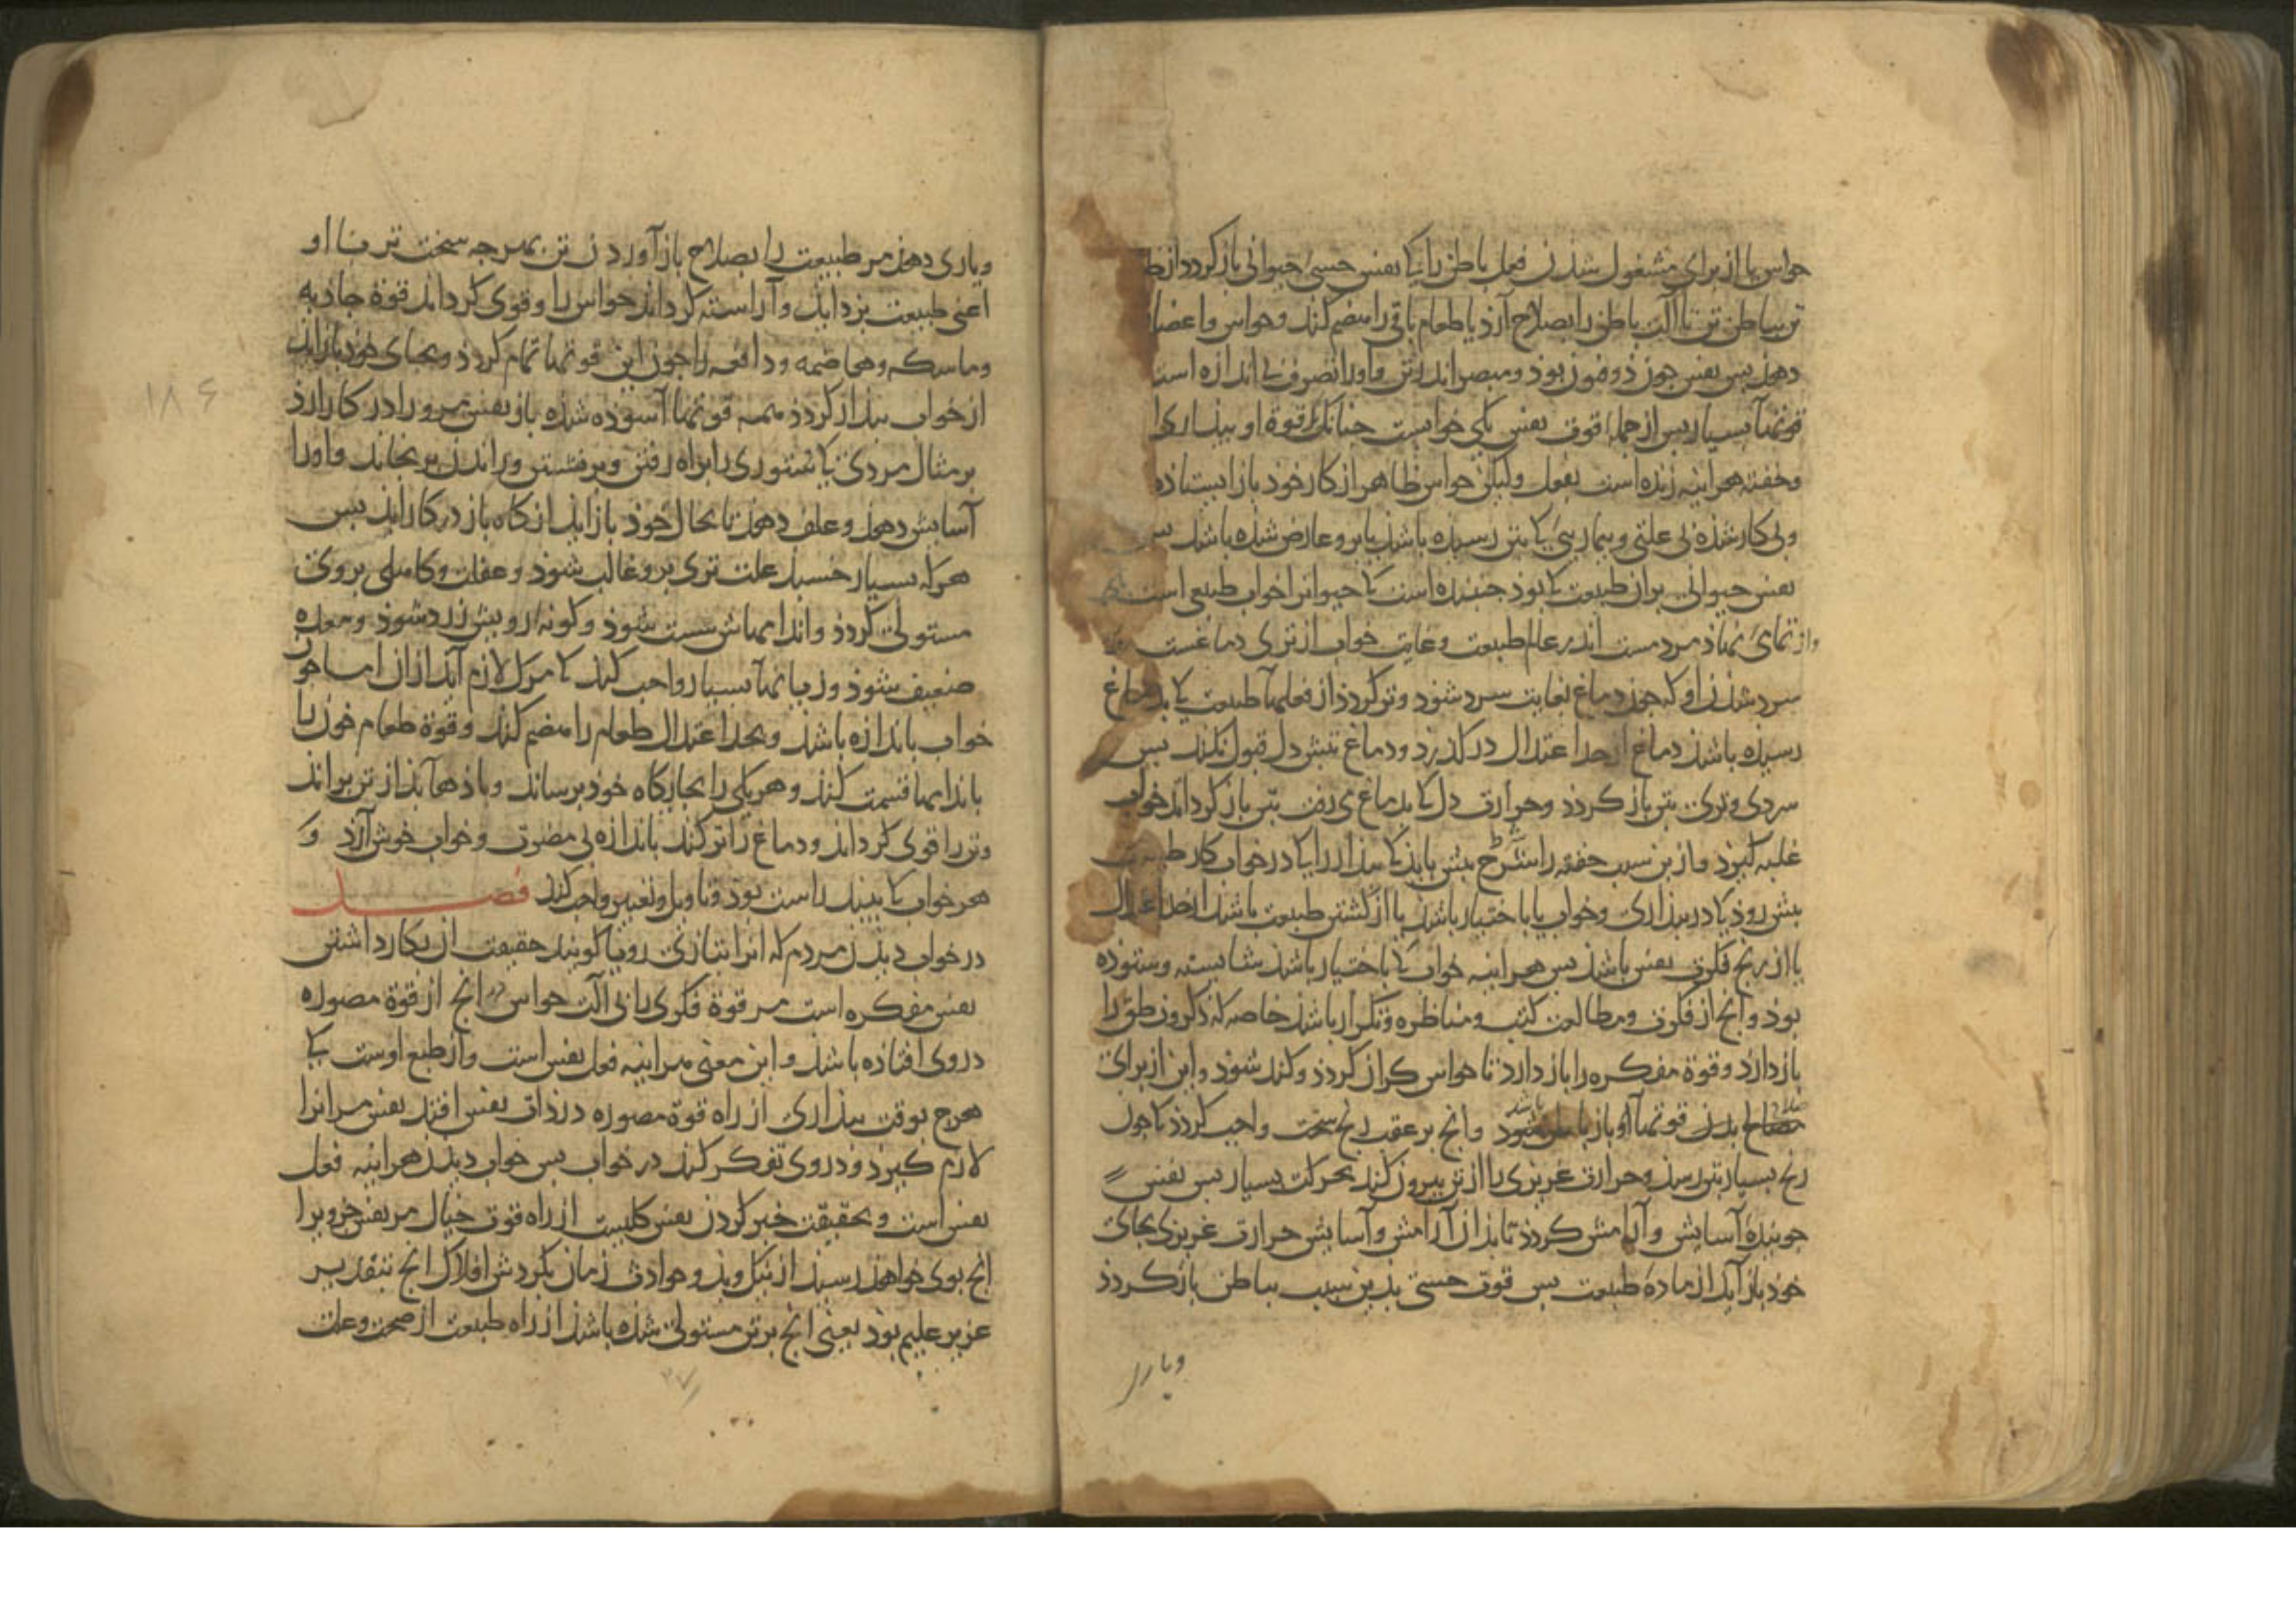 حواس با از برای مشغول شدن فعل باطن را یا نفس حسی حیوانی باز کردد از ظ
تن بباطن تن تا آلت باطن را بصلاح آرذ یا طعام باقی را هضم کند وحواس واعضا
دهذ پس نفس جوز ذو فنوز بوذ ومبصر اندر تن واورا تصرف بی اندازه است
قوتها بسیار پس از جمله قوت نفس یکی خوابست جنانک قوة او بیداری
وخفته هراینه زنده است بفعل ولیکن حواس ظاهر از کار خود باز ایستاده
وبی کار شذه بی علتی وبیمارییٔ کا بتن رسیده باشذ یا برو عارض شذه باشذ پس
نفس حیوانی بر از طبیعت کا بوذ جنبنده است کا حیوانرا خواب طبیعی است
مردمست اندر عالم طبیعت وغایت خواب از تری دماغست
سرد شذن او که جوز دماغ بغایت سرد شود وتر کردذ از فعلها طبیعت کا بدماغ
رسیذه باشذ دماغ از حد اعتدال در کذرد ودماغ تبش دل قبول نکند پس
سردی وتری بتن باز کردذ وحرارت دل کا بدماغ می رفت بتن باز کرداند خواب
غلبه کیرذ واز بن سبب خفته را بیش بایذ کا بیذار را کا در خواب کار طبیعت
بیش روذ کا در بیذاری وخواب یا باختیار باشذ یا از کشتن طبیعت باشذ از حد اعتدال
یا از رنج فکرت نفس باشذ پس هراینه خواب کا باختیار باشذ شایسته وستوده
بوذ وانج از فکرت ومطالعت کتب ومناظره وتکرار باشذ خاصه که ذکر ونطق را
باز دارذ وقوة مفکره را باز دارد تا حواس کران کردذ وکند شوذ واین از برای
قوتها او باز وانج بر عقب رنج سخت واجب کردذ کا جون
رنج بسیار بتن رسذ وحرارت غریزی را از تن بیرون کند بحرکت بسیار پس نفس
جویندهٔ آسایش وآرامش کردذ تا بذان آرامش وآسایش حرارت غریزی بجای
خوذ باز آید از مادهٔ طبیعت پس قوت حسی بذین سبب بباطن باز کردذ
ویاری
ویاری دهذ مر طبیعت را بصلاح باز آوردن تن بهرجه سخت تر تا او
اعنی طبیعت بزداید وآراسته کرداند حواس را وقوی کرداند قوة جاذبه
وماسکه وهاضمه ودافعه را جون این قوتها تمام کردذ وبجای خوذ باز اید
از خواب بیدار کردذ همه قوتها آسوده شذه باز نفس مرو را در کار ارذ
بر مثال مردی کا ستوری را براه رفتن وبر نشستن وراندن برنجاند واورا
آسایش دهذ وعلف دهذ تا بحال خوذ باز اید انکاه باز در کار اید پس
هر که بسیار خسبذ علت تری برو غالب شود وغفلت وکاهلی بروی
مستولی کردذ واندامهاش سست شوذ وکونهٔ رویش زرد شوذ ومعده
ضعیف شوذ وزیانها بسیار واجب کند کا مرک لازم آید از ان اما جون
خواب باندازه باشذ وبحد اعتدال طعام را هضم کند وقوة طعام خوز با
باندامها قسمت کند وهر یکی را بجایکاه خوذ برساند وباذها بذ از تن براند
وتن را قوی کرداند ودماغ را تر کند باندازه بی مضرت وخواب خوش آرذ و
هر خواب کا بیند راست بوذ وتاویل وتعبیر واجب کند فصل
در خواب دیذن مردم که انرا بتازی رویا کویند حقیقت ان بکار داشتن
نفس مفکره است مر قوة فکری را بی آلت حواس در انج از قوة مصوره
در وی افتاده باشذ واین معنی هراینه فعل نفس است واز طبع اوست کا
هرج بوقت بیذاری از راه قوة مصوره در ذات نفس افتذ نفس مر انرا
لازم کیرذ ودر وی تفکر کند در خواب پس خواب دیذن هراینه فعل
نفس است وبحقیقت خبر کردن نفس کلیست از راه قوت خیال مر نفس جزویرا
انج بوی خواهذ رسیذ از نیک وبذ وحوادث زمان بکردش افلاک انج بتقدیر
عزیز علیم بوذ یعنی انج بر تن مستولی شذه باشذ از راه طبیعت از صحت وعلت
۱۸۶